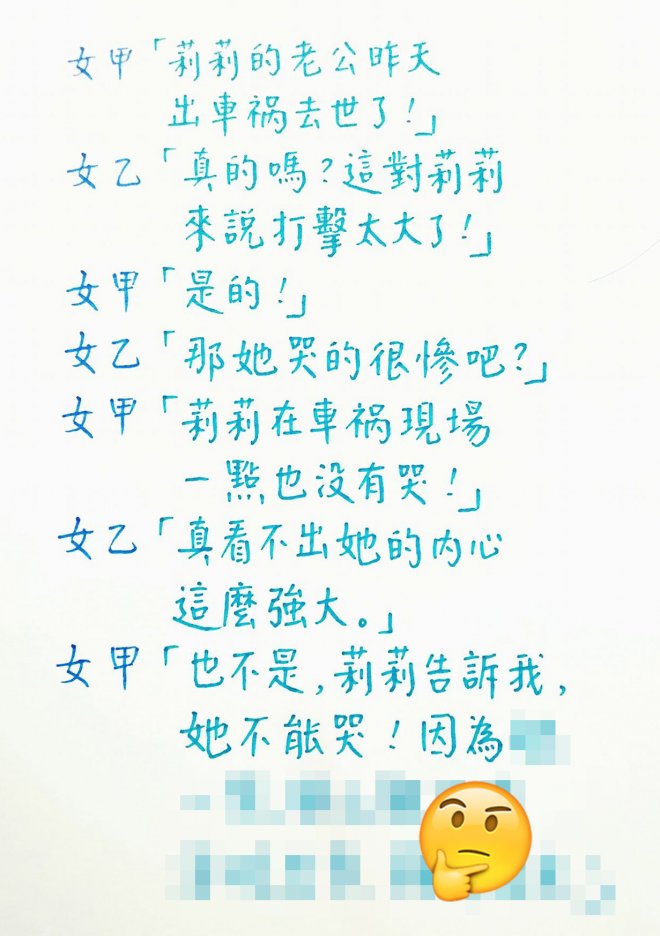 女甲「莉莉的老公昨天
出車祸去世了!」
女乙「真的嗎?這對莉莉
來說打擊太大了!」
女甲「是的!」
女乙「那她哭的很慘吧?」
女甲「莉莉在車祸現場
一點也没有哭!」
女乙「真看不出她的內心
這麼強大。」
女甲「也不是,莉莉告訴我,
她不能哭!因為